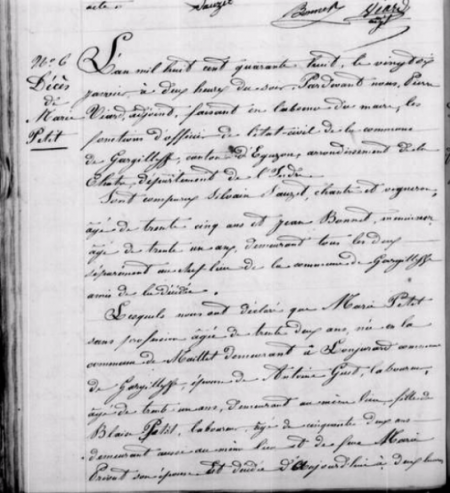 acte. Sauzet
Bonnet Viard
adjt
N.o 6
Décès
de
Marie
Petit
L'an mil huit cent quarante huit, le vingt six
janvier à deux heures du soir. Pardevant nous, Pierre
Viard, adjoint, faisant en l'absence du maire, les
fonctions d'officier de l'état civil de la commune
de Gargilesse, canton d'Eguzon, arrondissement de la
Châtre, département de l'Indre
Sont comparus Silvain Sauzet, charte et vigneron,
âgé de trente cinq ans et Jean Bonnet,
âgé de trente un ans, demeurant tous les deux
séparément au chef lieu de la commune de Gargilesse
amis de la décédée.
Lesquels nous ont déclaré que Marie Petit
sans profession âgée de trente deux ans, née en la
commune de Maillet demeurant à commune
de Gargilesse, épouse de Antoine laboureur,
âgé de trente un ans, demeurant au même lieu, fille de
Blaise Petit, laboureur, âgé de cinquante deux ans
demeurant aussi au même lieu et de feue Marie
son épouse Est décédée d'Aujourd'hui à deux heures